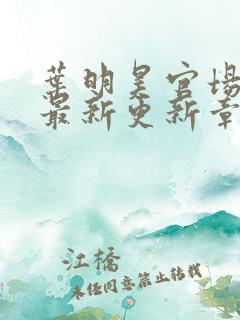 葉明昊官場
最新更新章
江橋
未任同意禁止转载